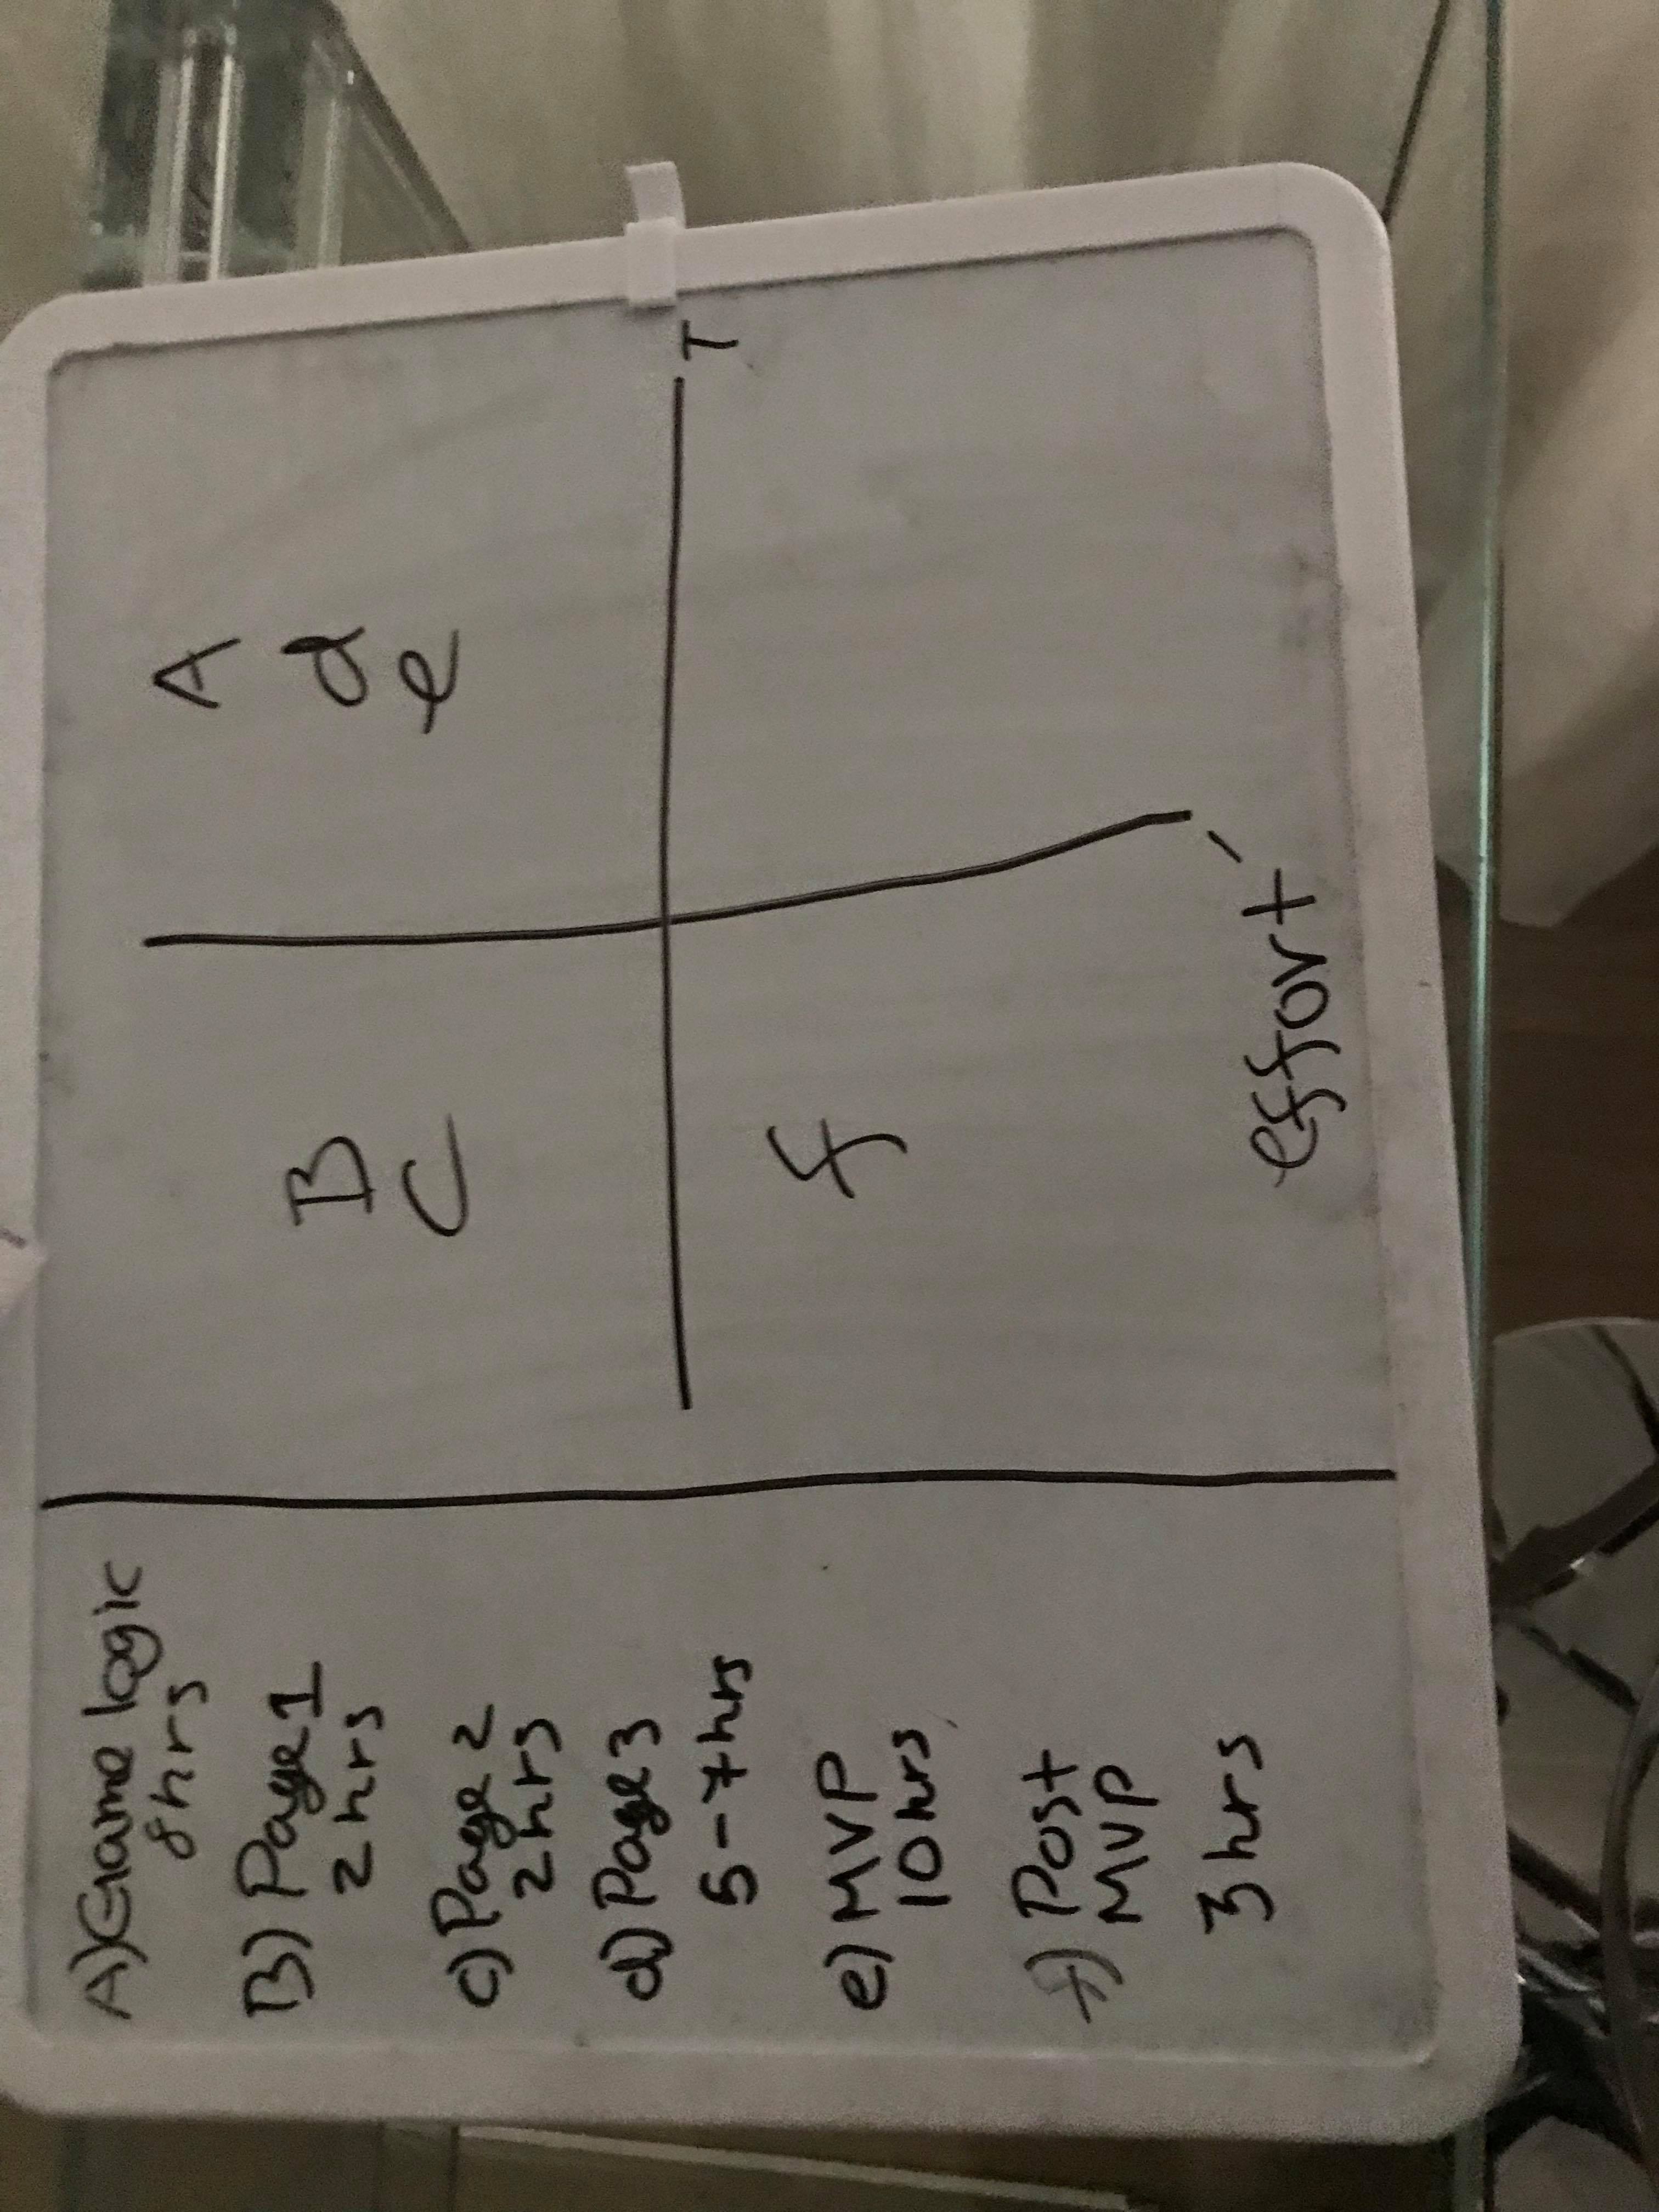 A) Game logic
8hrs
B) Page 1
2 hrs
c) Page 2
2 hrs
d) Page 3
5-7 hrs
e) MVP
10 hrs
f) Post
MVP
3 hrs
A
d
e
B
C
T
f
effort